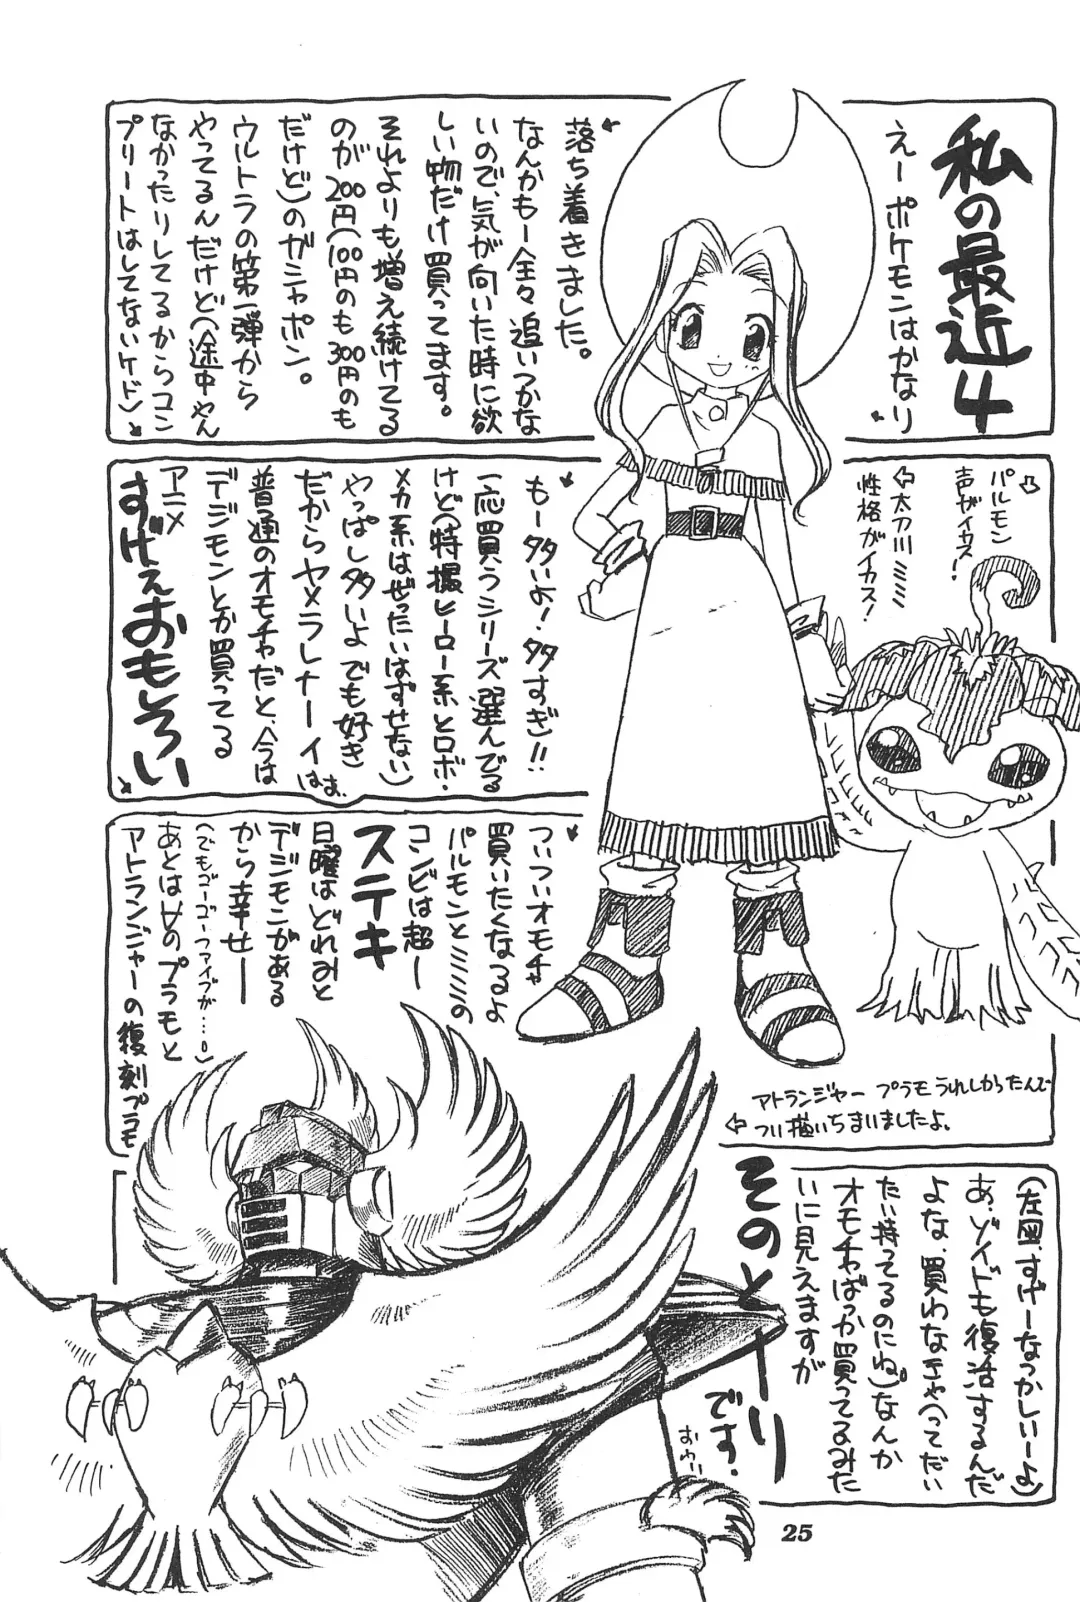 私の最近4
えーポケモンはかなり
落ち着きました。
なんかもー全々追いつかな
いので、気が向いた時に欲
しい物だけ買ってます。
それよりも増え続けてる
のが200円(100円のも300円のも
だけど)のガシャポン。
ウルトラの第一弾から
やってるんだけど(途中やん
なかったりしてるからコン
プリートはしてないケド)
パルモン
声がイカス!
太刀川ミミ
性格がイカス!
もータタいよ!タタすぎ!!
一応買うシリーズ選んでる
けど(特撮ヒーロー系とロボ・
メカ系はぜったいはずせない)
やっぱしタタいよでも好き
だからヤメラレナーイ
はぁ
普通のオモチャだと、今は
デジモンとか買ってる
アニメ
すげぇおもしろい
ついついオモチャ
買いたくなるよ
パルモンとミミの
コンビは超ー
ステキ
日曜はどれみと
デジモンがある
から幸せー
(でもゴーゴーファイブが…。)
あとは
のプラモと
アトランジャーの復刻プラモ
アトランジャー プラモ うれしかったんで
つい描いちまいましたよ。
(左図、すげーなつかしいーよ)
あ、ゾイドも復活するんだ
よな、買わなきゃ(ってだい
たい持てるのにね)なんか
オモチャばっか買ってるみた
いに見えますが
そのとーり
です。
25